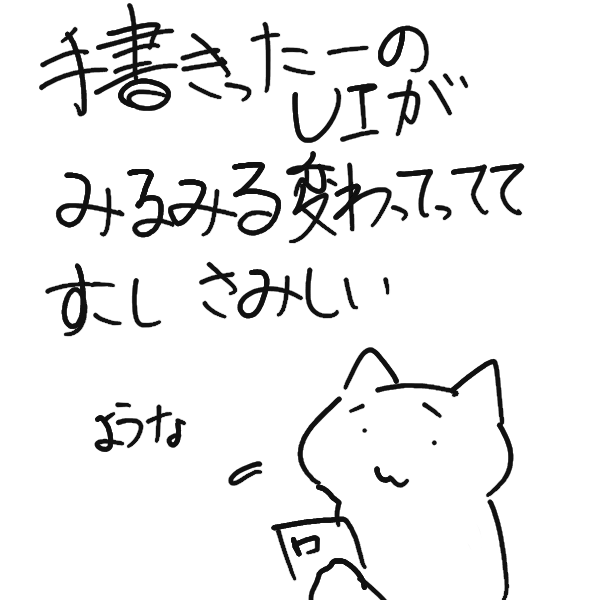 手書きったーの
UIが
みるみる変わってってて
すこし さみしい
ような